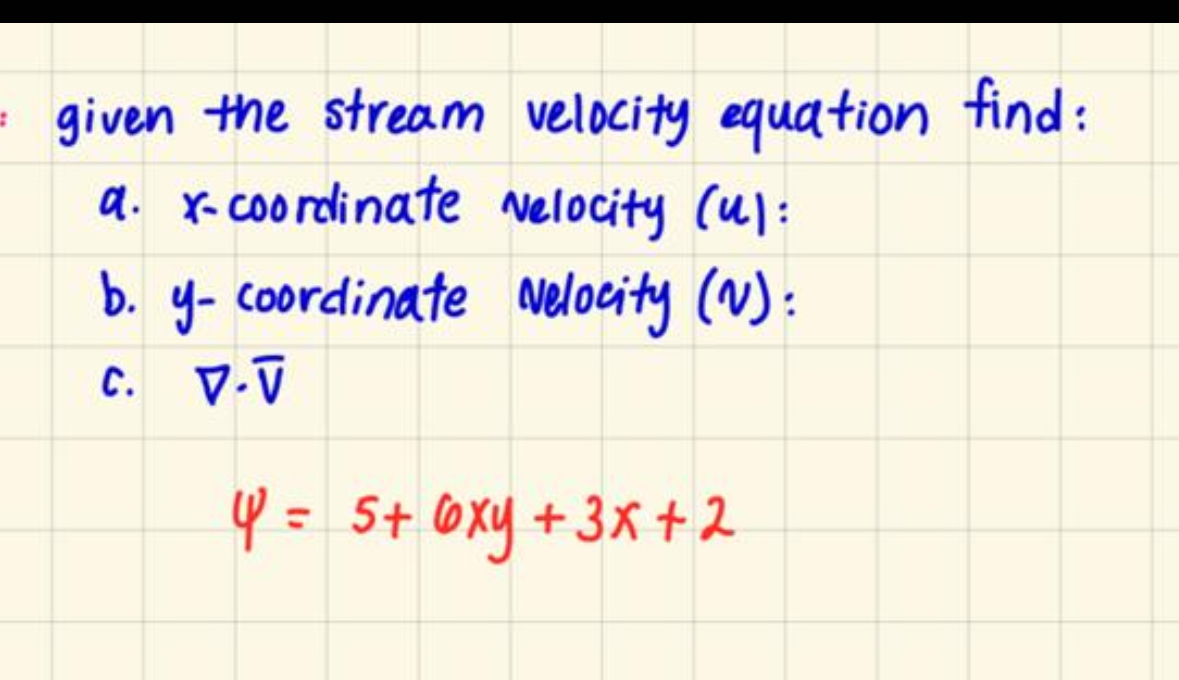 : given the stream velocity equation find:
a. x-coordinate velocity (u):
b. y-coordinate velocity (v):
c. ∇·V̅
ψ = 5+ 6xy +3x +2